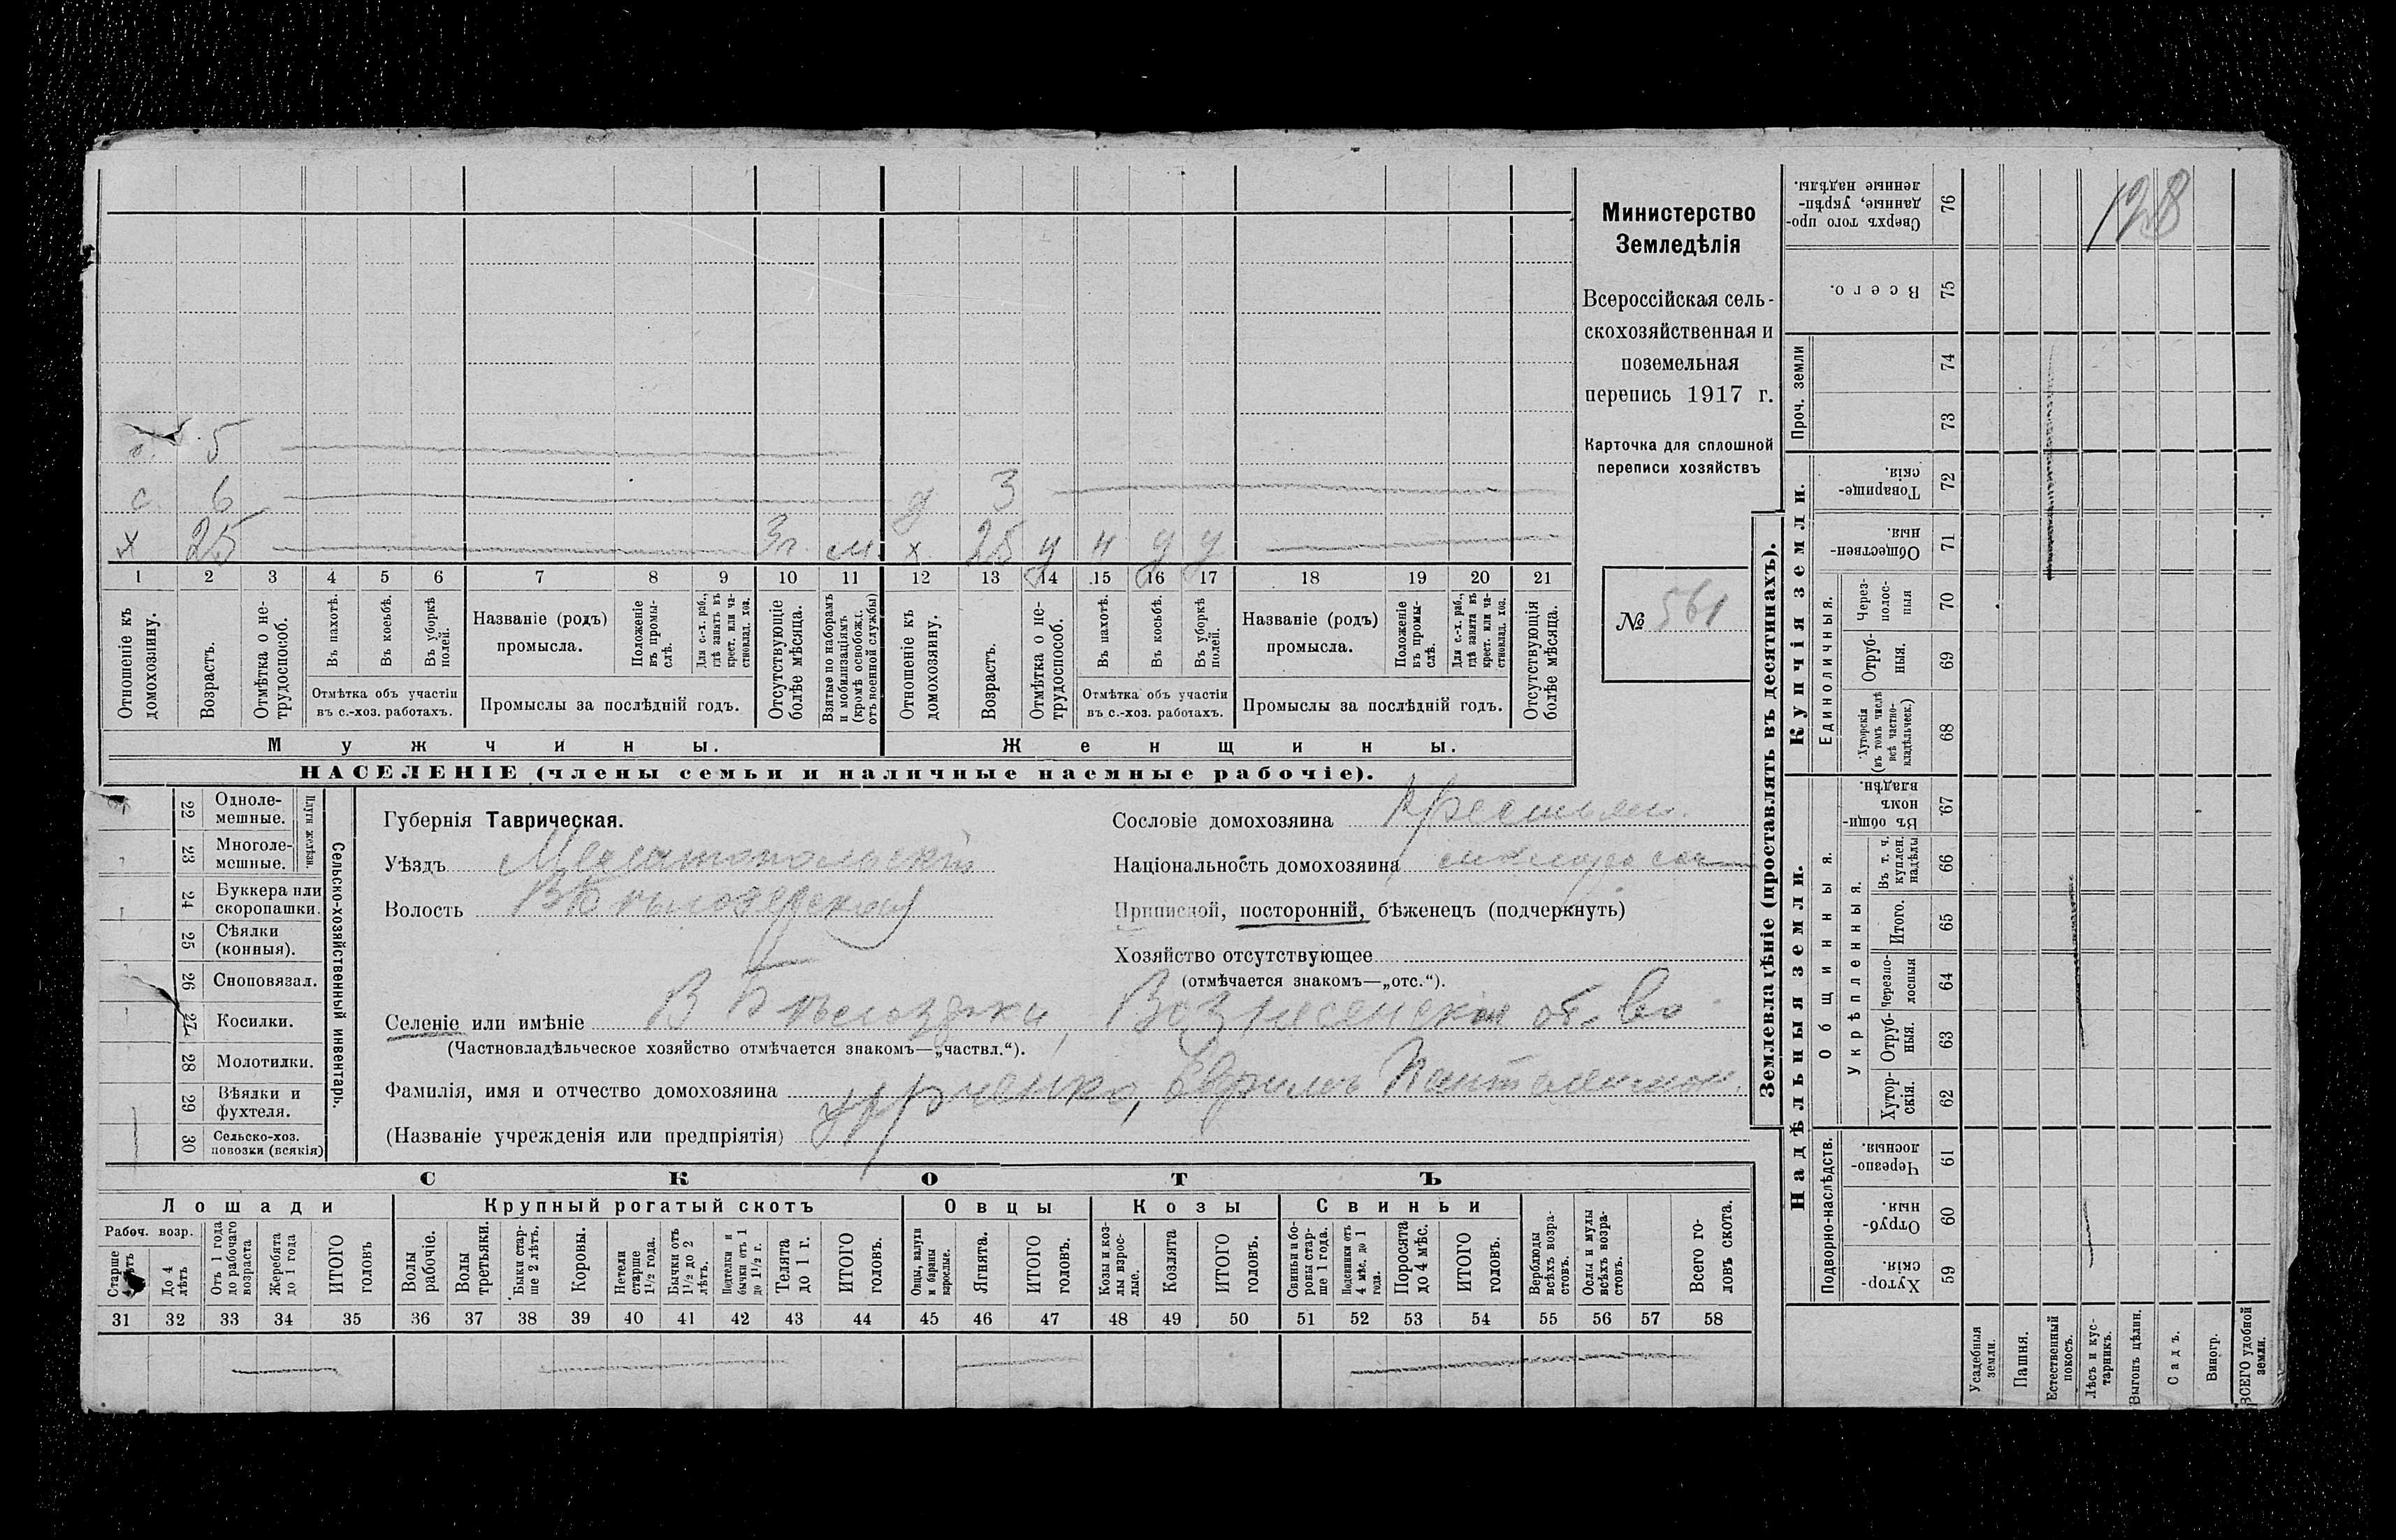 128
Министерство
Земледѣлія
Всероссійская сель-
скохозяйственная и
поземельная
перепись 1917 г.
Карточка для сплошной
переписи хозяйствъ
№ 561
5
с. 6 д 3
х 25 3 г. м. х 25 у н у у
1 2 3 4 5 6 7 8 9 10 11 12 13 14 15 16 17 18 19 20 21
Отношеніе къ домохозяину.
Возрастъ.
Отмѣтка о не-трудоспособ.
Въ пахотѣ.
Въ косьбѣ.
Въ уборкѣ полей.
Отмѣтка объ участіи
въ с.-хоз. работахъ.
Названіе (родъ)
промысла.
Положеніе въ промы-слѣ.
Для с.-х. раб., гдѣ занятъ въ крест. или ча-стновлад. хоз.
Промыслы за послѣдній годъ.
Отсутствующіе болѣе мѣсяца.
Взятые по наборамъ и мобилизаціямъ (кромѣ освобожд. отъ военной службы)
Отношеніе къ домохозяину.
Возрастъ.
Отмѣтка о не-трудоспособ.
Въ пахотѣ.
Въ косьбѣ.
Въ уборкѣ полей.
Отмѣтка объ участіи
въ с.-хоз. работахъ.
Названіе (родъ)
промысла.
Положеніе въ промы-слѣ.
Для с.-х. раб., гдѣ занята въ крест. или ча-стновлад. хоз.
Промыслы за послѣдній годъ.
Отсутствующія болѣе мѣсяца.
Мужчины.
Женщины.
НАСЕЛЕНІЕ (члены семьи и наличные наемные рабочіе).
22 Одноле-мешные.
23 Многоле-мешные.
Плуги желѣзн.
24 Буккера или скоропашки.
25 Сѣялки (конныя).
26 Сноповязал.
27 Косилки.
28 Молотилки.
29 Вѣялки и фухтеля.
30 Сельско-хоз. повозки (всякія)
Сельско-хозяйственный инвентарь.
Губернія Таврическая.
Уѣздъ Мелитопольскій
Волость Бѣлозерская
Сословіе домохозяина Крестьян.
Національность домохозяина малоросс
Приписной, посторонній, бѣженецъ (подчеркнуть)
Хозяйство отсутствующее
(отмѣчается знакомъ—„отс.“).
Селеніе или имѣніе В Бѣлозерки, Вознесенское об-во
(Частновладѣльческое хозяйство отмѣчается знакомъ—„частвл.“).
Фамилія, имя и отчество домохозяина Юрченко, Ефримъ Пантелеимон.
(Названіе учрежденія или предпріятія)
СКОТЪ
Лошади
Крупный рогатый скотъ
Овцы
Козы
Свиньи
Рабоч. возр.
Старше лѣтъ
До 4 лѣтъ
Отъ 1 года до рабочаго возраста
Жеребята до 1 года
ИТОГО головъ
Волы рабочіе.
Волы третьяки.
Быки стар-ше 2 лѣтъ.
Коровы.
Нетели старше 1½ года.
Бычки отъ 1½ до 2 лѣтъ.
Подтелки и бычки отъ 1 до 1½ г.
Телята до 1 г.
ИТОГО головъ.
Овцы, валухи и бараны взрослые.
Ягнята.
ИТОГО головъ.
Козы и коз-лы взрос-лые.
Козлята
ИТОГО головъ.
Свиньи и бо-ровы стар-ше 1 года.
Подсвинки отъ 4 мѣс. до 1 года.
Поросята до 4 мѣс.
ИТОГО головъ.
Верблюды всѣхъ возра-стовъ.
Ослы и мулы всѣхъ возра-стовъ.
Всего го-ловъ скота.
31 32 33 34 35 36 37 38 39 40 41 42 43 44 45 46 47 48 49 50 51 52 53 54 55 56 57 58
Землевладѣніе (проставлять въ десятинахъ).
Сверхъ того про-данные, укрѣп-ленные надѣлы. 76
Всего. 75
Проч. земли
74
73
Купчія земли.
Товарище-скія. 72
Обществен-ныя. 71
Единоличныя.
Через-полос-ныя 70
Отруб-ныя. 69
Хуторскія (въ томъ числѣ всѣ частно-владѣльческ.) 68
Надѣльныя земли.
Общинныя.
Въ общи-номъ владѣн. 67
Укрѣпленныя.
Въ т. ч. куплен. надѣлы 66
Итого. 65
Черезпо-лосныя 64
Отруб-ныя. 63
Хутор-скія. 62
Подворно-наслѣдств.
Черезпо-лосныя 61
Отруб-ныя. 60
Хутор-скія. 59
Усадебныя земли.
Пашня.
Естественный покосъ.
Лѣсъ и кус-тарникъ.
Выгонъ цѣлин.
Садъ.
Виногр.
ВСЕГО удобной земли.